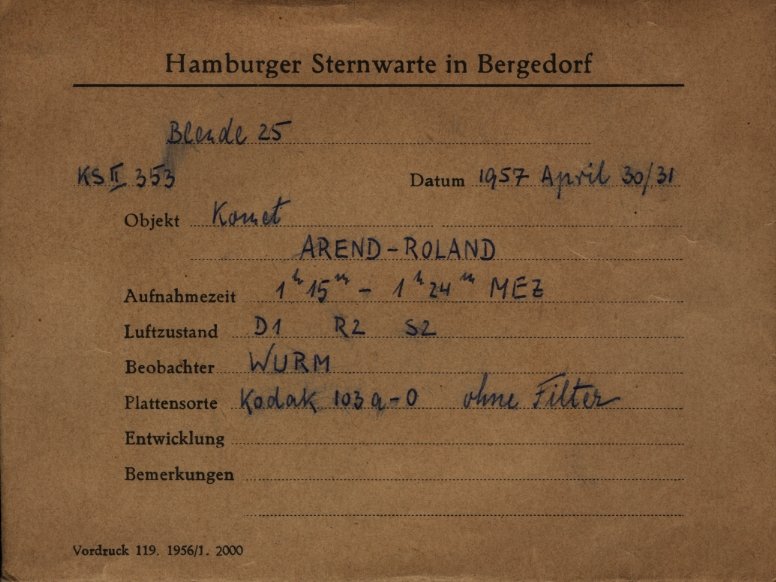 Hamburger Sternwarte in Bergedorf
Blende 25
KS II 353 Datum 1957 April 30/31
Objekt Komet
AREND-ROLAND
Aufnahmezeit 1ʰ 15ᵐ - 1ʰ 24ᵐ MEZ
Luftzustand D1 R2 S2
Beobachter WURM
Plattensorte Kodak 103a-O ohne Filter
Entwicklung
Bemerkungen
Vordruck 119. 1956/1. 2000